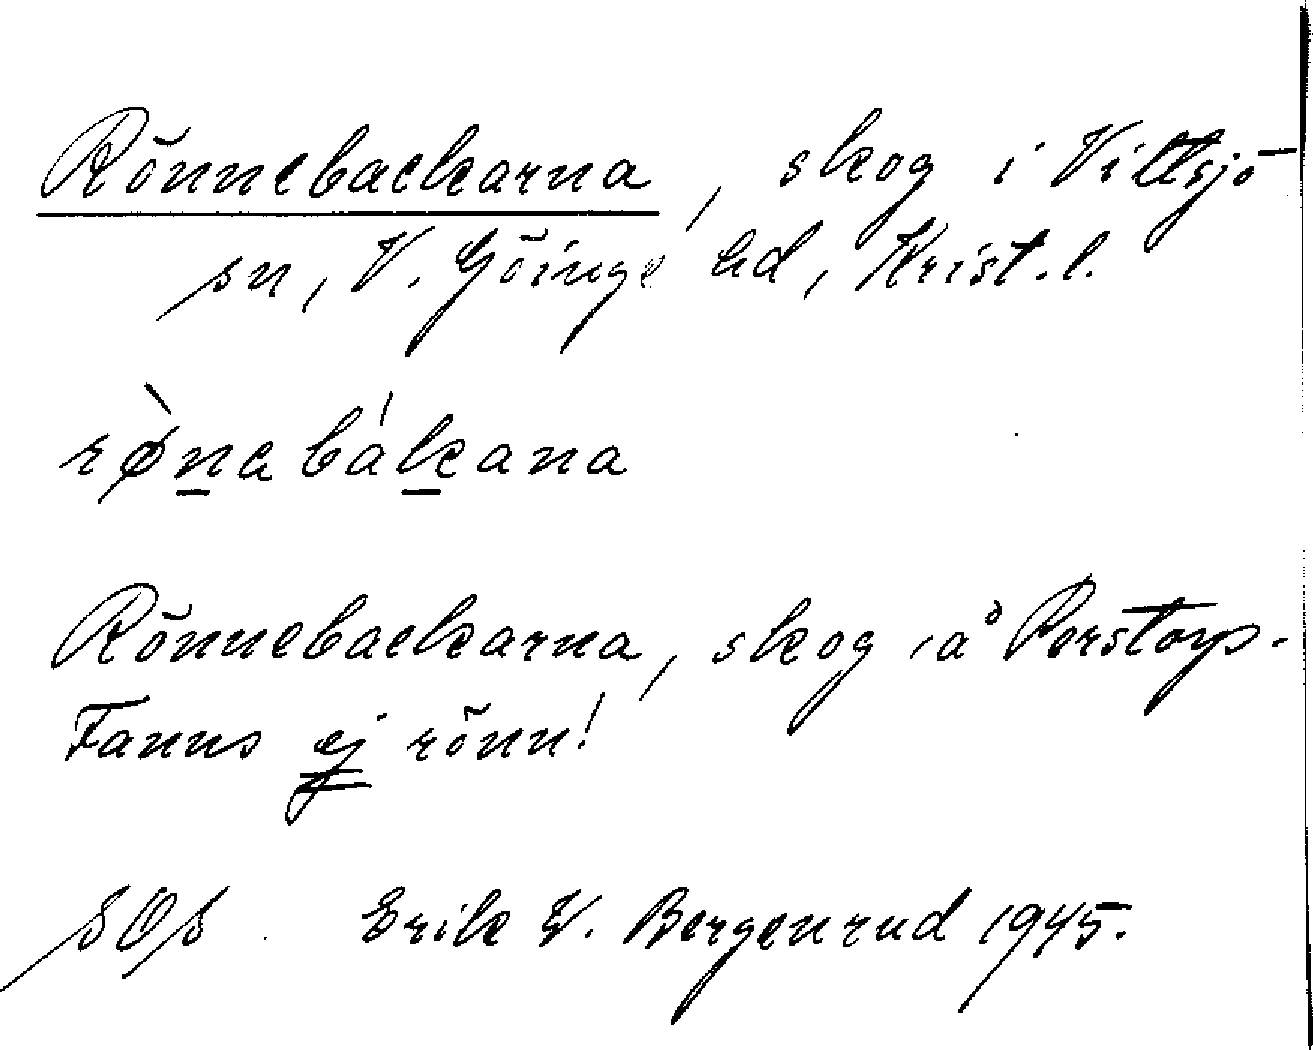 Rönnebackarna, skog i Vittsjö
sn, V. Göinge hd, Krist. l.
rø̀na bákana
Rönnebackarna, skog å Porstorp.
Fanns ej rönn!
SOS. Erik W. Bergenrud 1945.